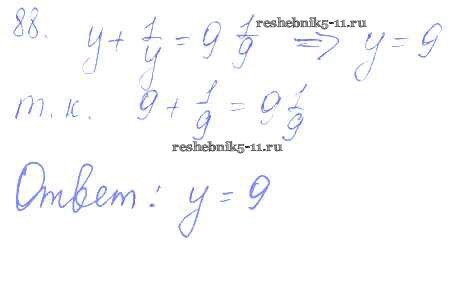 reshebnik5-11.ru
88. y + 1/y = 9 1/9 => y = 9
т.к. 9 + 1/9 = 9 1/9
reshebnik5-11.ru
Ответ: y = 9